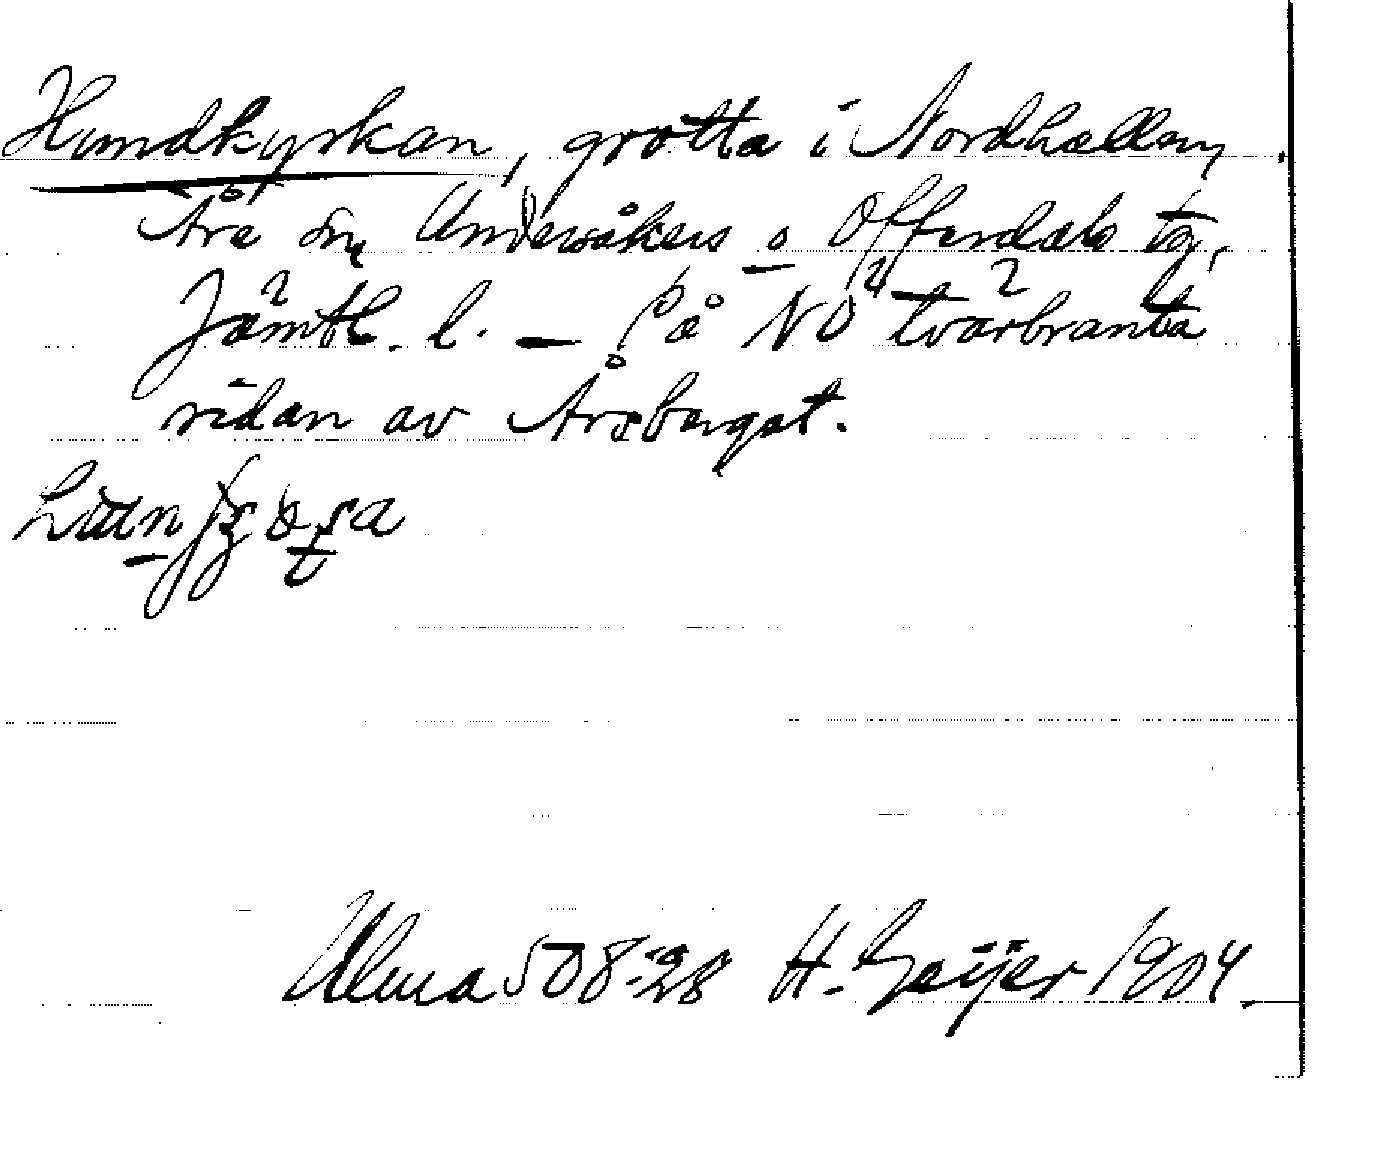 Hundkyrkan, grotta i Nordhallen,
Åre sn, Undersåkers o Offerdals tg,
Jämtl. l. — På NÖ tvärbranta
sidan av Åreberget.
Ulma 508:28 H. Geijer 1904.